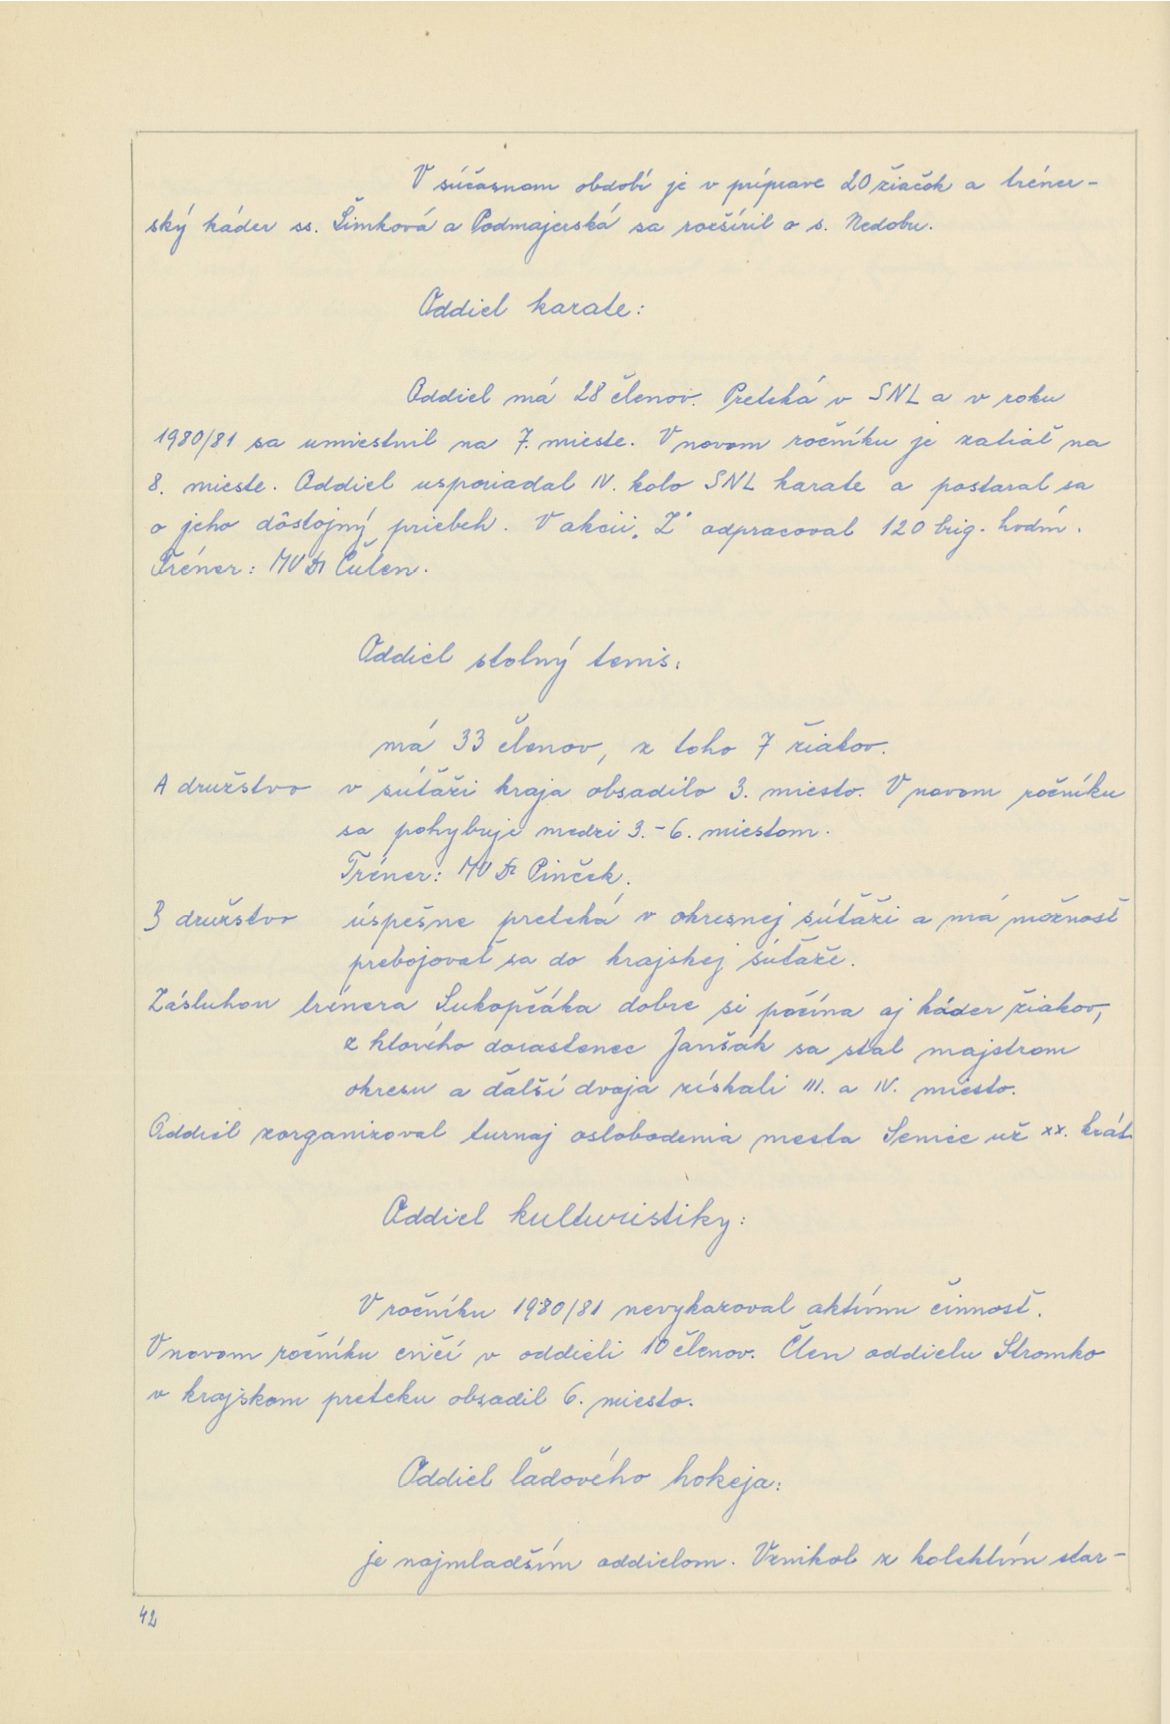 V súčasnom období je v príprave 20 žiačok a tréner-
ský káder ss. Šimková a Podmajerská sa rozšíril o s. Nedobu.
Oddiel karate:
Oddiel má 28 členov. Preteká v SNL a v roku
1980/81 sa umiestnil na 7. mieste. V novom ročníku je zatiaľ na
8. mieste. Oddiel usporiadal IV. kolo SNL karate a postaral sa
o jeho dôstojný priebeh. V akcii „Z" odpracoval 120 brig. hodín.
Tréner: MVDr Čulen.
Oddiel stolný tenis:
má 33 členov, z toho 7 žiakov.
A družstvo v súťaži kraja obsadilo 3. miesto. V novom ročníku
sa pohybuje medzi 3.-6. miestom.
Tréner: MVDr Pinček.
B družstvo úspešne preteká v okresnej súťaži a má možnosť
prebojovať sa do krajskej súťaže.
Zásluhou trénera Sukopčáka dobre si počína aj káder žiakov,
z ktorého dorastenec Janšák sa stal majstrom
okresu a ďalší dvaja získali III. a IV. miesto.
Oddiel zorganizoval turnaj oslobodenia mesta Senice už xx. krát
Oddiel kulturistiky:
V ročníku 1980/81 nevykazoval aktívnu činnosť.
V novom ročníku cvičí v oddieli 10 členov. Člen oddielu Stromko
v krajskom preteku obsadil 6. miesto.
Oddiel ľadového hokeja:
je najmladším oddielom. Vznikol z kolektívu star-
42